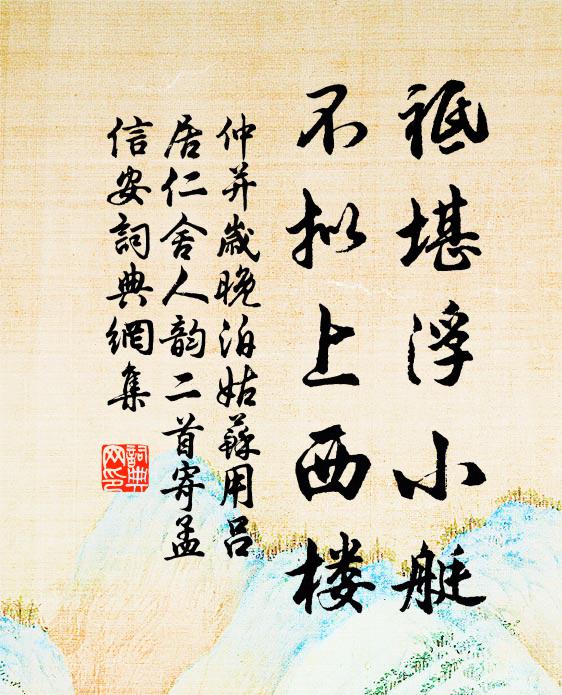 祗堪浮小艇
不拟上西楼
仲并歲晚泊姑蘇用吕
居仁舍人韵二首寄孟
信安詞典網集
詞典网印